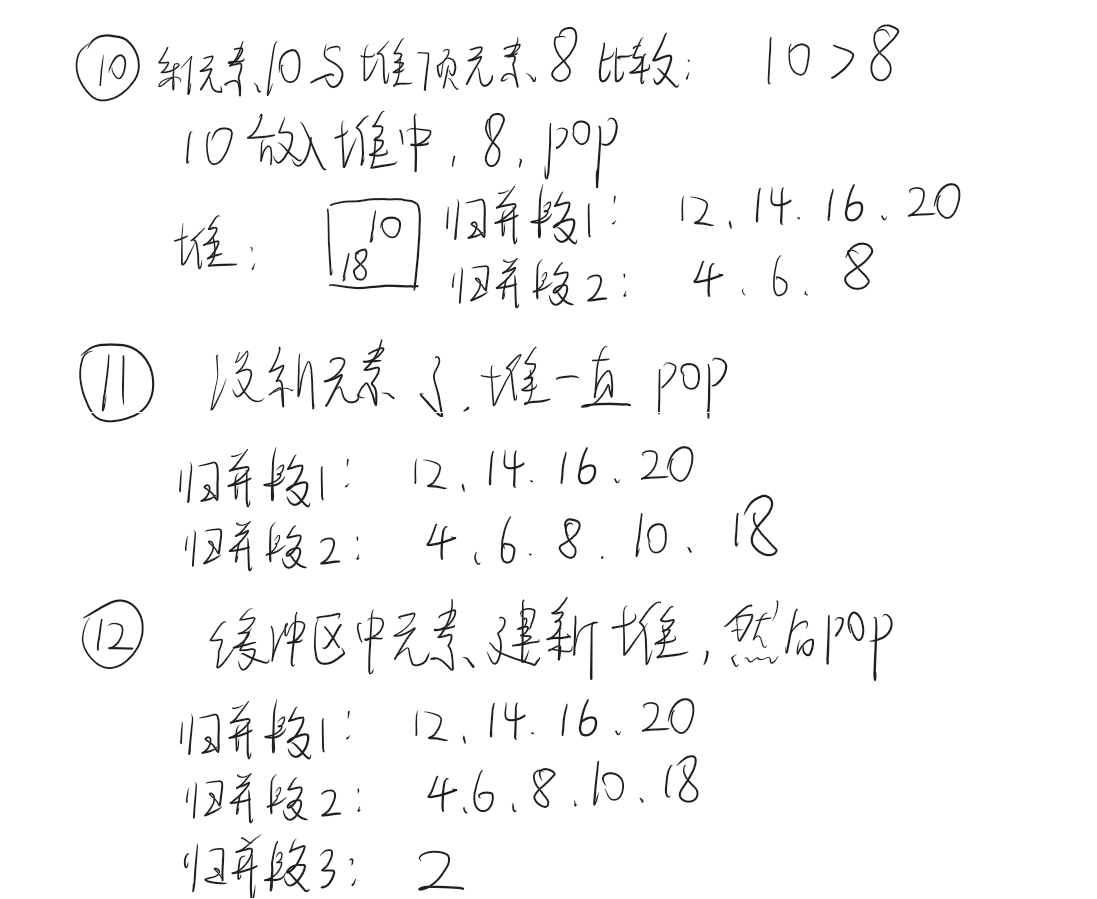 ⑩ 新元素10与堆顶元素8比较: 10>8
10放入堆中, 8, pop
堆: 10 归并段1: 12、14. 16、20
18 归并段2: 4、6、8
⑪ 没新元素了, 堆一直pop
归并段1: 12、14. 16、20
归并段2: 4、6. 8. 10、18
⑫ 缓冲区中元素建新堆, 然后pop
归并段1: 12、14. 16、20
归并段2: 4、6、8.10、18
归并段3: 2